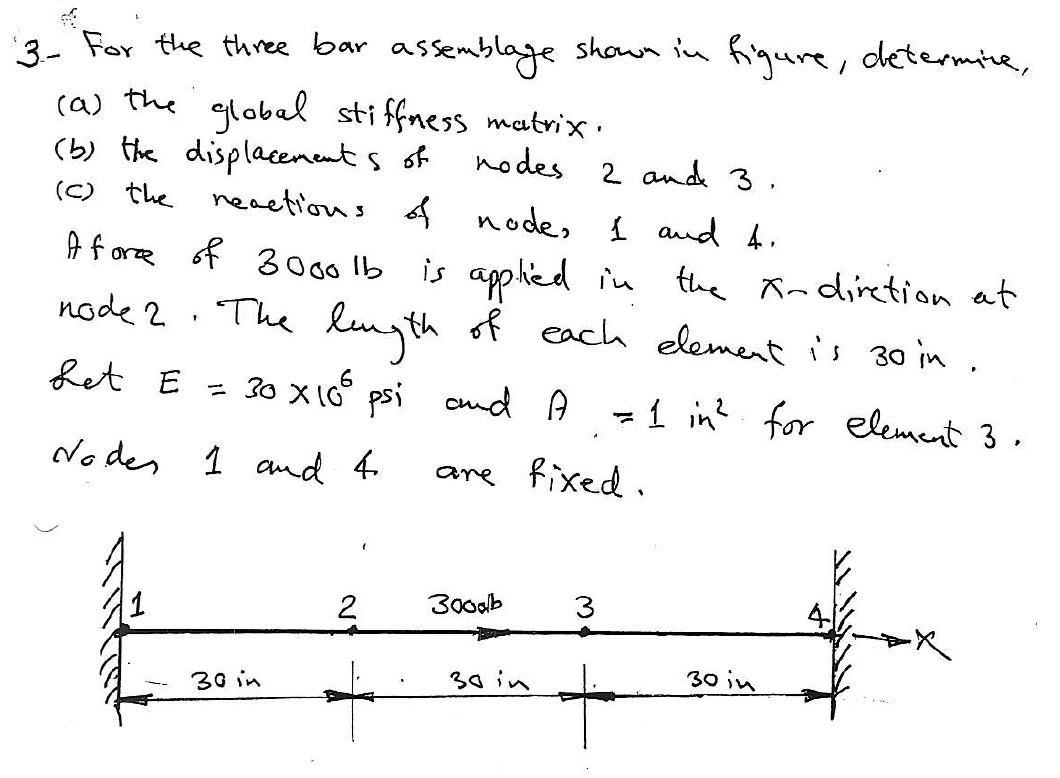 3- For the three bar assemblage shown in figure, determine,
(a) the global stiffness matrix.
(b) the displacements of nodes 2 and 3.
(c) the reactions of nodes 1 and 4.
A force of 3000 lb is applied in the x-dirction at
node 2. The length of each element is 30 in.
Let E = 30 x 10⁶ psi and A = 1 in² for element 3.
Nodes 1 and 4 are fixed.
1 2 3000lb 3 4 x
30 in 30 in 30 in